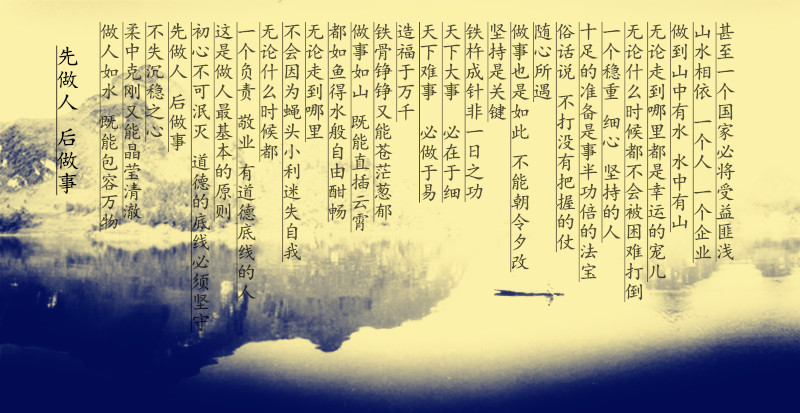 先做人 后做事
做人如水 既能包容万物
柔中克刚又能晶莹清澈
不失沉稳之心
先做人 后做事
初心不可泯灭 道德的底线必须坚守
这是做人最基本的原则
一个负责 敬业 有道德底线的人
无论什么时候都
不会因为蝇头小利迷失自我
无论走到哪里
都如鱼得水般自由酣畅
做事如山 既能直插云霄
铁骨铮铮又能苍茫葱郁
造福于万千
天下难事 必做于易
天下大事 必在于细
铁杵成针非一日之功
坚持是关键
做事也是如此 不能朝令夕改
随心所遇
俗话说 不打没有把握的仗
十足的准备是事半功倍的法宝
一个稳重 细心 坚持的人
无论什么时候都不会被困难打倒
无论走到哪里都是幸运的宠儿
做到山中有水 水中有山
山水相依 一个人 一个企业
甚至一个国家必将受益匪浅